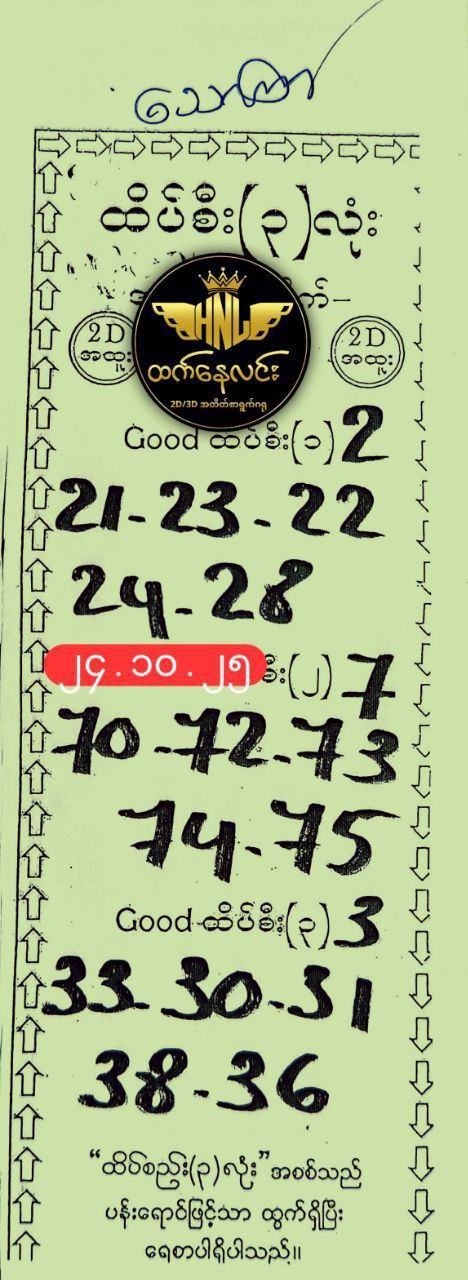 သောကြာ
ထိပ်စီး(၃)လုံး
2D
အထူး
HNL
ထက်နေလင်း
2D/3D အတိတ်စာရွက်ဂရု
2D
အထူး
Good ထိပ်စီး(၁) 2
21-23-22
24-28
၂၄.၁၀.၂၅
စီး(၂) 7
70-72-73
74-75
Good ထိပ်စီး(၃) 3
33-30-31
38-36
“ထိပ်စည်း(၃)လုံး” အစစ်သည်
ပန်းရောင်ဖြင့်သာ ထွက်ရှိပြီး
ရေစာပါရှိပါသည်။